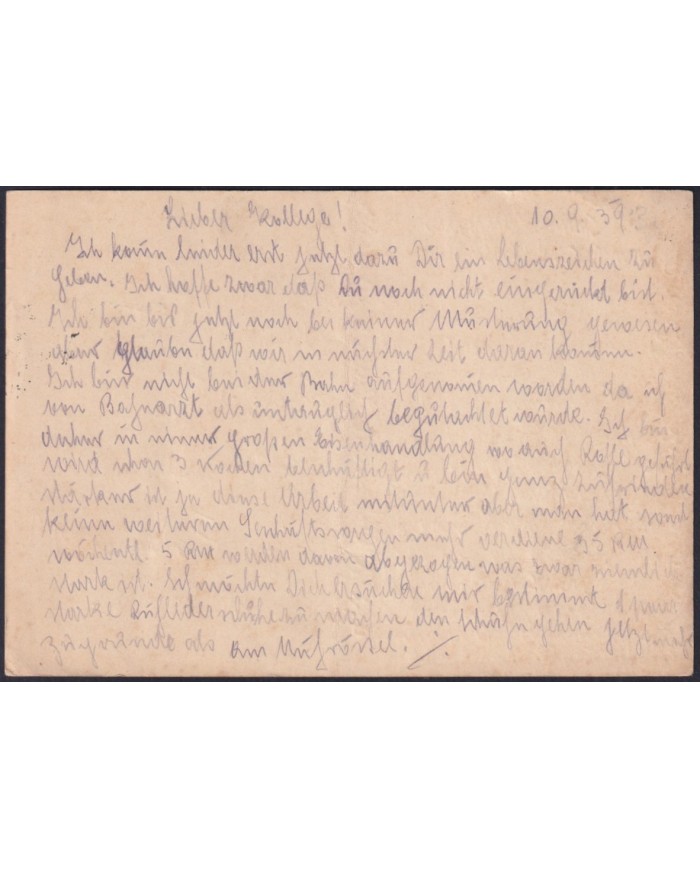 Lieber Kollege! 10. 9. 39.
Ich komm leider erst jetzt dazu Dir ein Lebenszeichen zu
geben. Ich hoffe zwar daß Du noch nicht eingerückt bist.
Ich bin bis jetzt noch bei keiner Musterung gewesen
aber glaube daß wir in nächster Zeit daran kommen.
Ich bin nicht bei der Bahn aufgenommen worden da ich
von Bahnarzt als untauglich begutachtet wurde. Ich bin
daher in einer großen Eisenhandlung wo auch
wird schon 3 Wochen beschäftigt & bin ganz zufrieden
stärker ist ja diese Arbeit mitunter aber man hat sonst
keine weiteren Geschäftssorgen mehr verdiene 35 RM.
wöchentl. 5 RM werden davon abgezogen was zwar ziemlich
stark ist. Ich möchte Dich ersuchen mir bestimmt 1 paar
starke zu machen den Schuhe gehen jetzt mehr
zugrunde als am